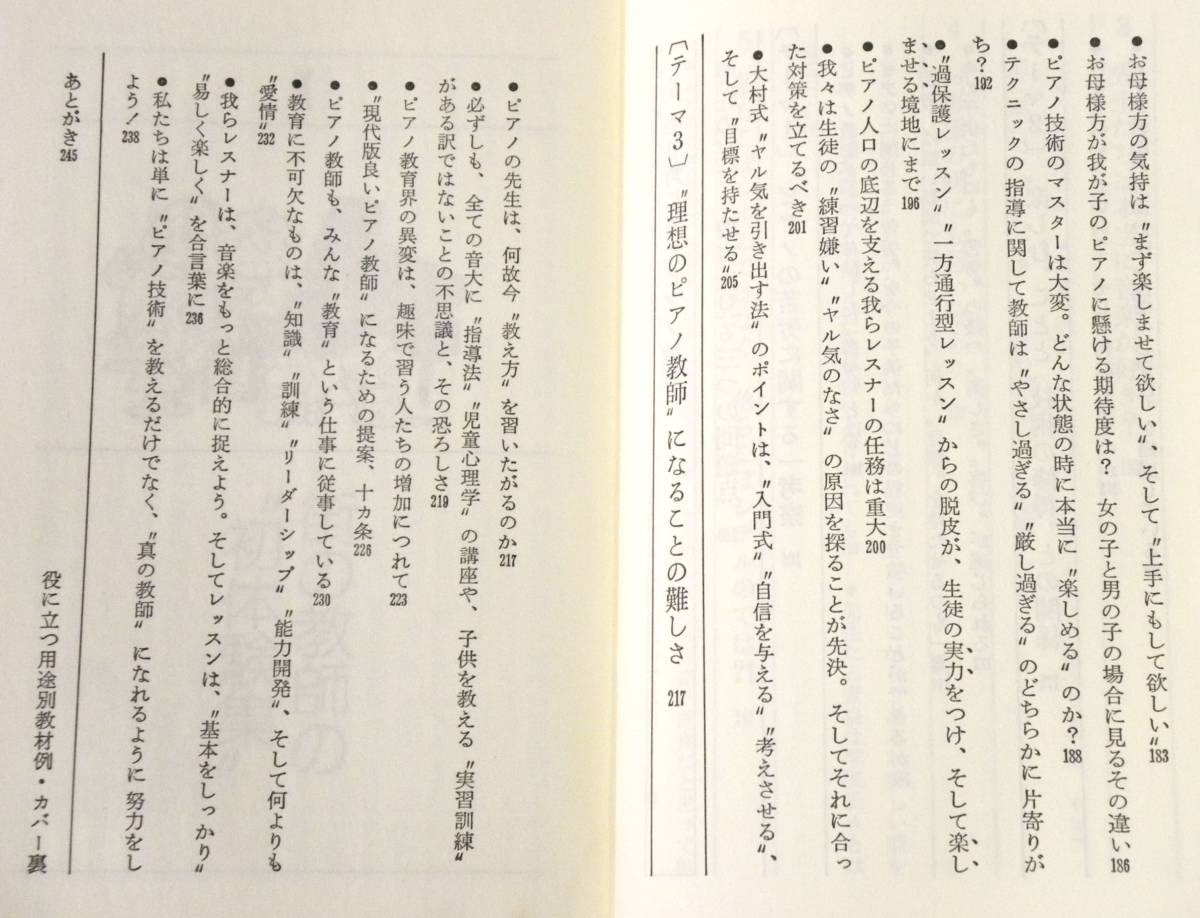 ●お母様方の気持は〝まず楽しませて欲しい〟、そして〝上手にもして欲しい〟183
●お母様方が我が子のピアノに懸ける期待度は? 女の子と男の子の場合に見るその違い186
●ピアノ技術のマスターは大変。どんな状態の時に本当に〝楽しめる〟のか?188
●テクニックの指導に関して教師は〝やさし過ぎる〟〝厳し過ぎる〟のどちらかに片寄りが
ち?192
●〝過保護レッスン〟〝一方通行型レッスン〟からの脱皮が、生徒の実力をつけ、そして楽し
ませる境地にまで196
●ピアノ人口の底辺を支える我らレスナーの任務は重大200
●我々は生徒の〝練習嫌い〟〝ヤル気のなさ〟の原因を探ることが先決。そしてそれに合っ
た対策を立てるべき201
●大村式〝ヤル気を引き出す法〟のポイントは、〝入門式〟〝自信を与える〟〝考えさせる〟、
そして〝目標を持たせる〟205
〔テーマ3〕〝理想のピアノ教師〟になることの難しさ 217
●ピアノの先生は、何故今〝教え方〟を習いたがるのか217
●必ずしも、全ての音大に〝指導法〟〝児童心理学〟の講座や、子供を教える〝実習訓練〟
がある訳ではないことの不思議と、その恐ろしさ219
●ピアノ教育界の異変は、趣味で習う人たちの増加につれて223
●〝現代版良いピアノ教師〟になるための提案、十カ条226
●ピアノ教師も、みんな〝教育〟という仕事に従事している230
●教育に不可欠なものは、〝知識〟〝訓練〟〝リーダーシップ〟〝能力開発〟、そして何よりも
〝愛情〟232
●我らレスナーは、音楽をもっと総合的に捉えよう。そしてレッスンは、〝基本をしっかり〟
〝易しく楽しく〟を合言葉に236
●私たちは単に〝ピアノ技術〟を教えるだけでなく、〝真の教師〟になれるように努力をし
よう!238
あとがき245
役に立つ用途別教材例・カバー裏